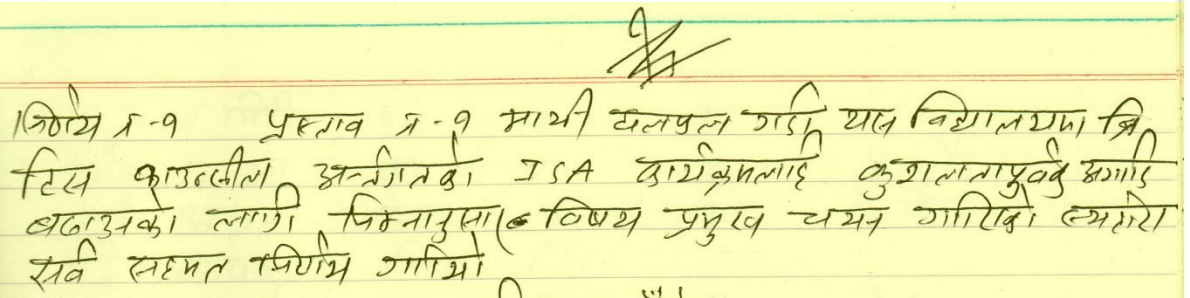 निर्णय नं -१ प्रस्ताव नं -१ माथी छलफल गर्दा यस विद्यालयमा ब्रि
टिस काउन्सील अर्न्तगतको ISA कार्यक्रमलाई कुशलतापूर्वक अगाडि
बढाउनको लागी निम्नानुसार विषय प्रमुख चयन गरिएको व्यहोरा
सर्व सहमत निर्णय गरियो